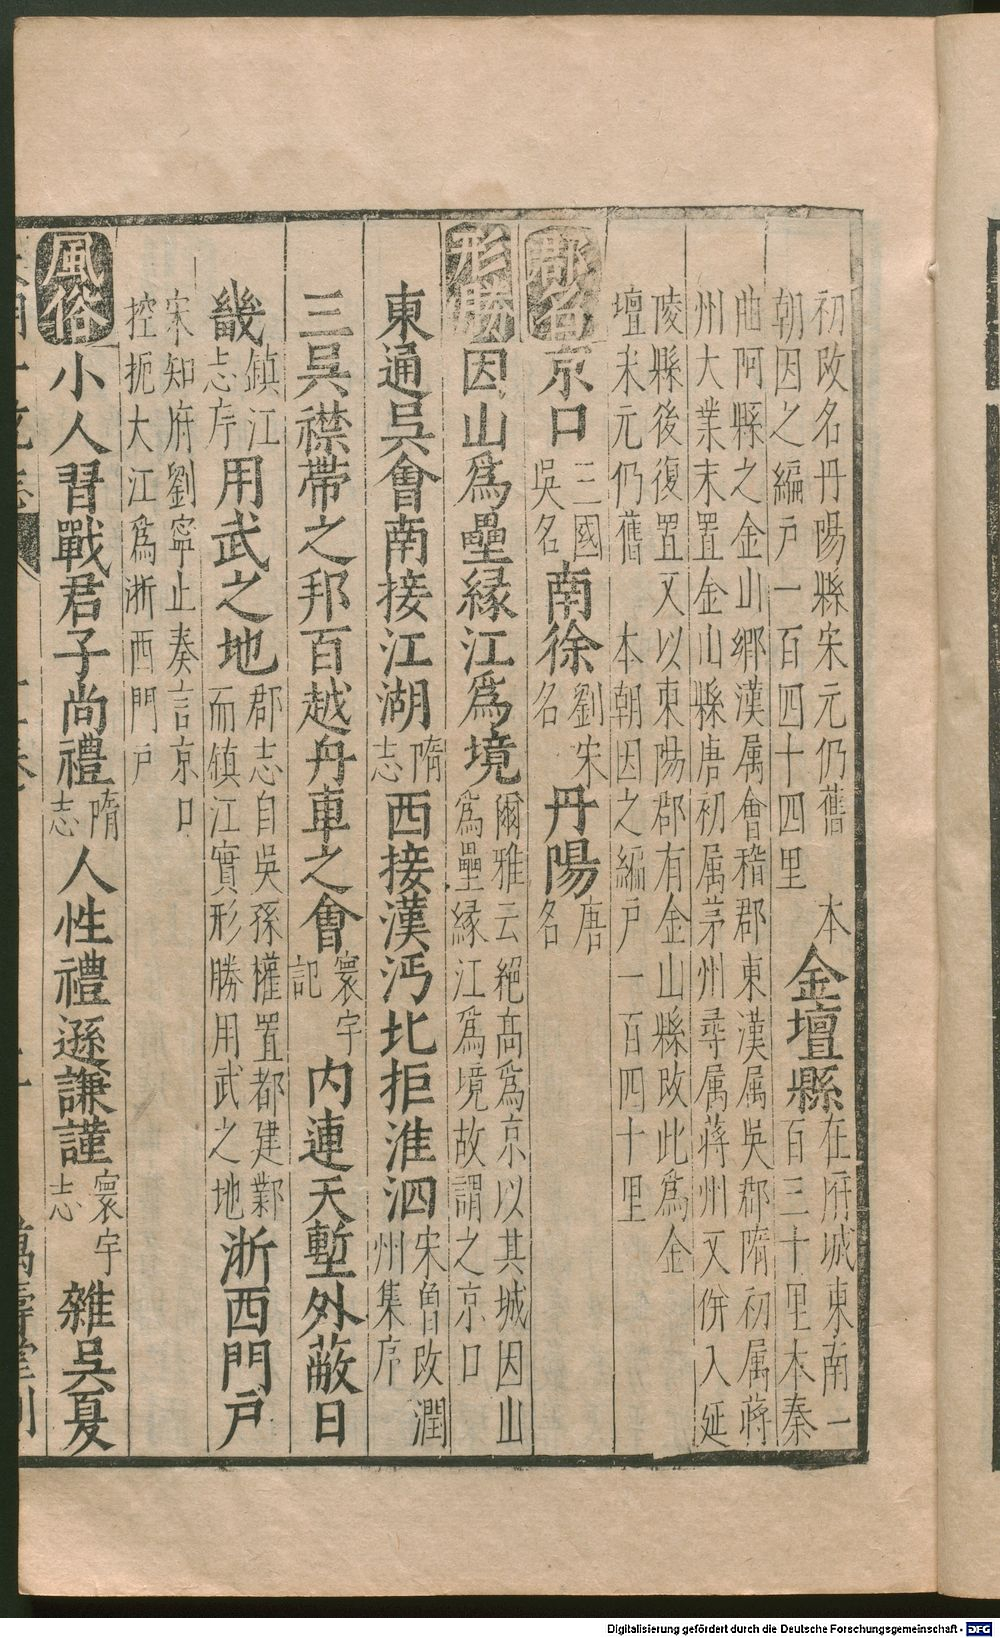 初改名丹陽縣宋元仍舊　本
朝因之編戶一百四十四里
金壇縣
在府城東南一
百三十里本秦
曲阿縣之金山鄉漢属會稽郡東漢属吳郡隋初属蔣
州大業末置金山縣唐初属茅州尋属蔣州又併入延
陵縣後復置又以東陽郡有金山縣改此為金
壇宋元仍舊　本朝因之編戶一百四十里
郡名 京口 三國吳名 南徐 劉宋名 丹陽 唐名
形勝 因山爲壘緣江爲境 爾雅云絕高爲京以其城因山
爲壘緣江爲境故謂之京口
東通吳會南接江湖 隋志 西接漢沔北拒淮泗 宋曾旼潤州集序
三吳襟帶之邦百越舟車之會 寰宇記 内連天塹外蔽日
畿 鎮江志序 用武之地 郡志自吳孫權置都建鄴
而鎮江實形勝用武之地 浙西門戶
宋知府劉寧止奏言京口
控扼大江爲浙西門戶
風俗 小人習戰君子尚禮 隋志 人性禮遜謙謹 寰宇志 雜吳夏
萬壽堂刊
Digitalisierung gefördert durch die Deutsche Forschungsgemeinschaft - DFG